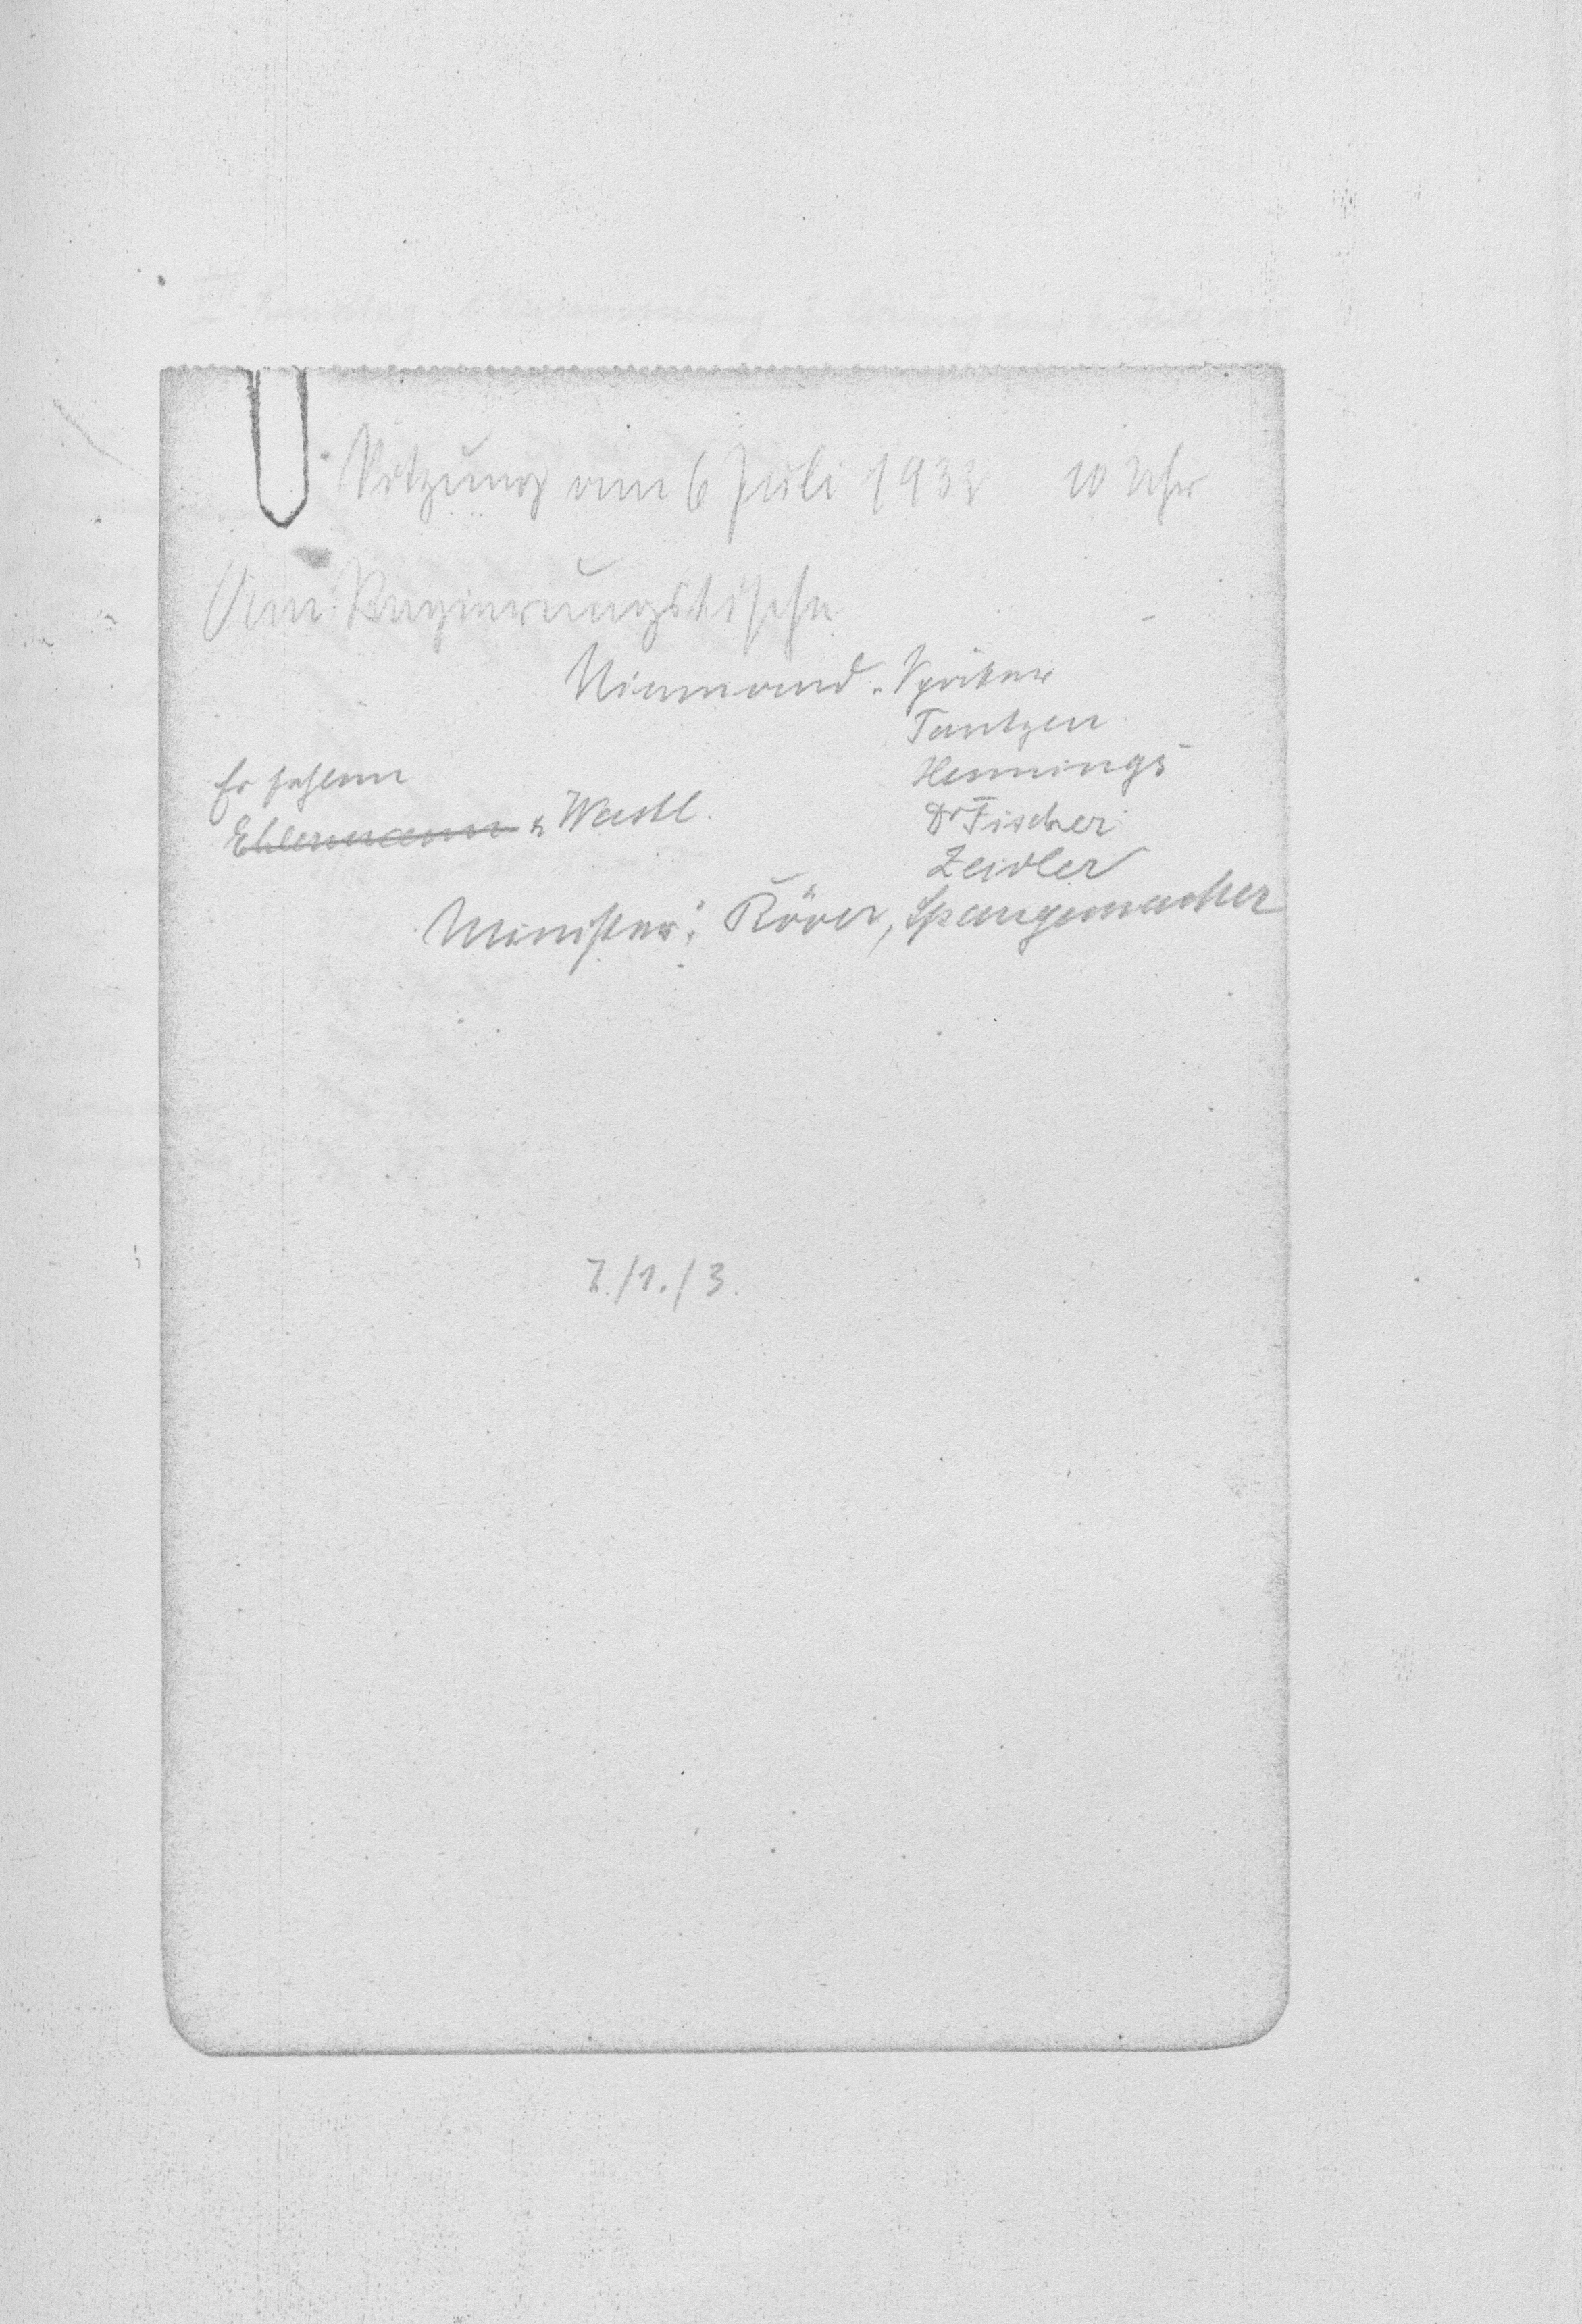 Sitzung am 6 Juli 1932 10 Uhr
Am Regierungstische
Niemand. Später
Tantzen
Hennings
Dr Fischer
Zeidler
Es fehlen
Ehlermann u Wastl.
Minister: Röver, Spangemacher
7./1./3.